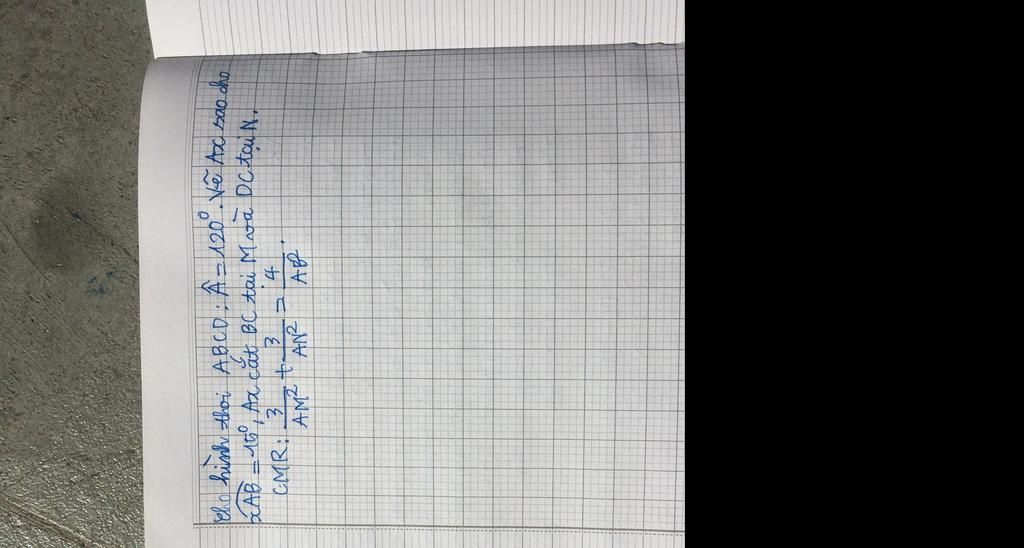 Cho hình thoi ABCD; Â = 120⁰. Vẽ Ax sao cho
xAB = 15⁰, Ax cắt BC tại M và DC tại N.
CMR: 3/AM² + 3/AN² = 4/AB².